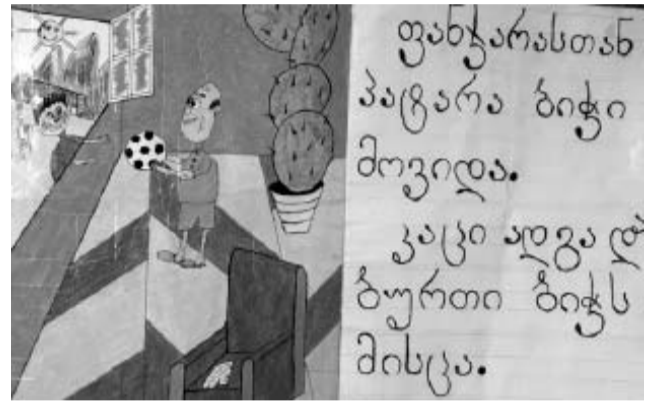 ფანჯარასთან
პატარა ბიჭი
მოვიდა.
კაცი ადგა და
ბურთი ბიჭს
მისცა.